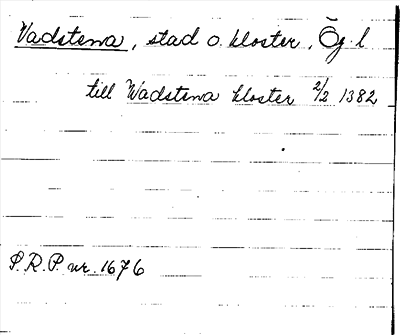 Vadstena, stad o. kloster, Ög. l
till Wadstena kloster 2/2 1382
S.R.P. nr. 1676